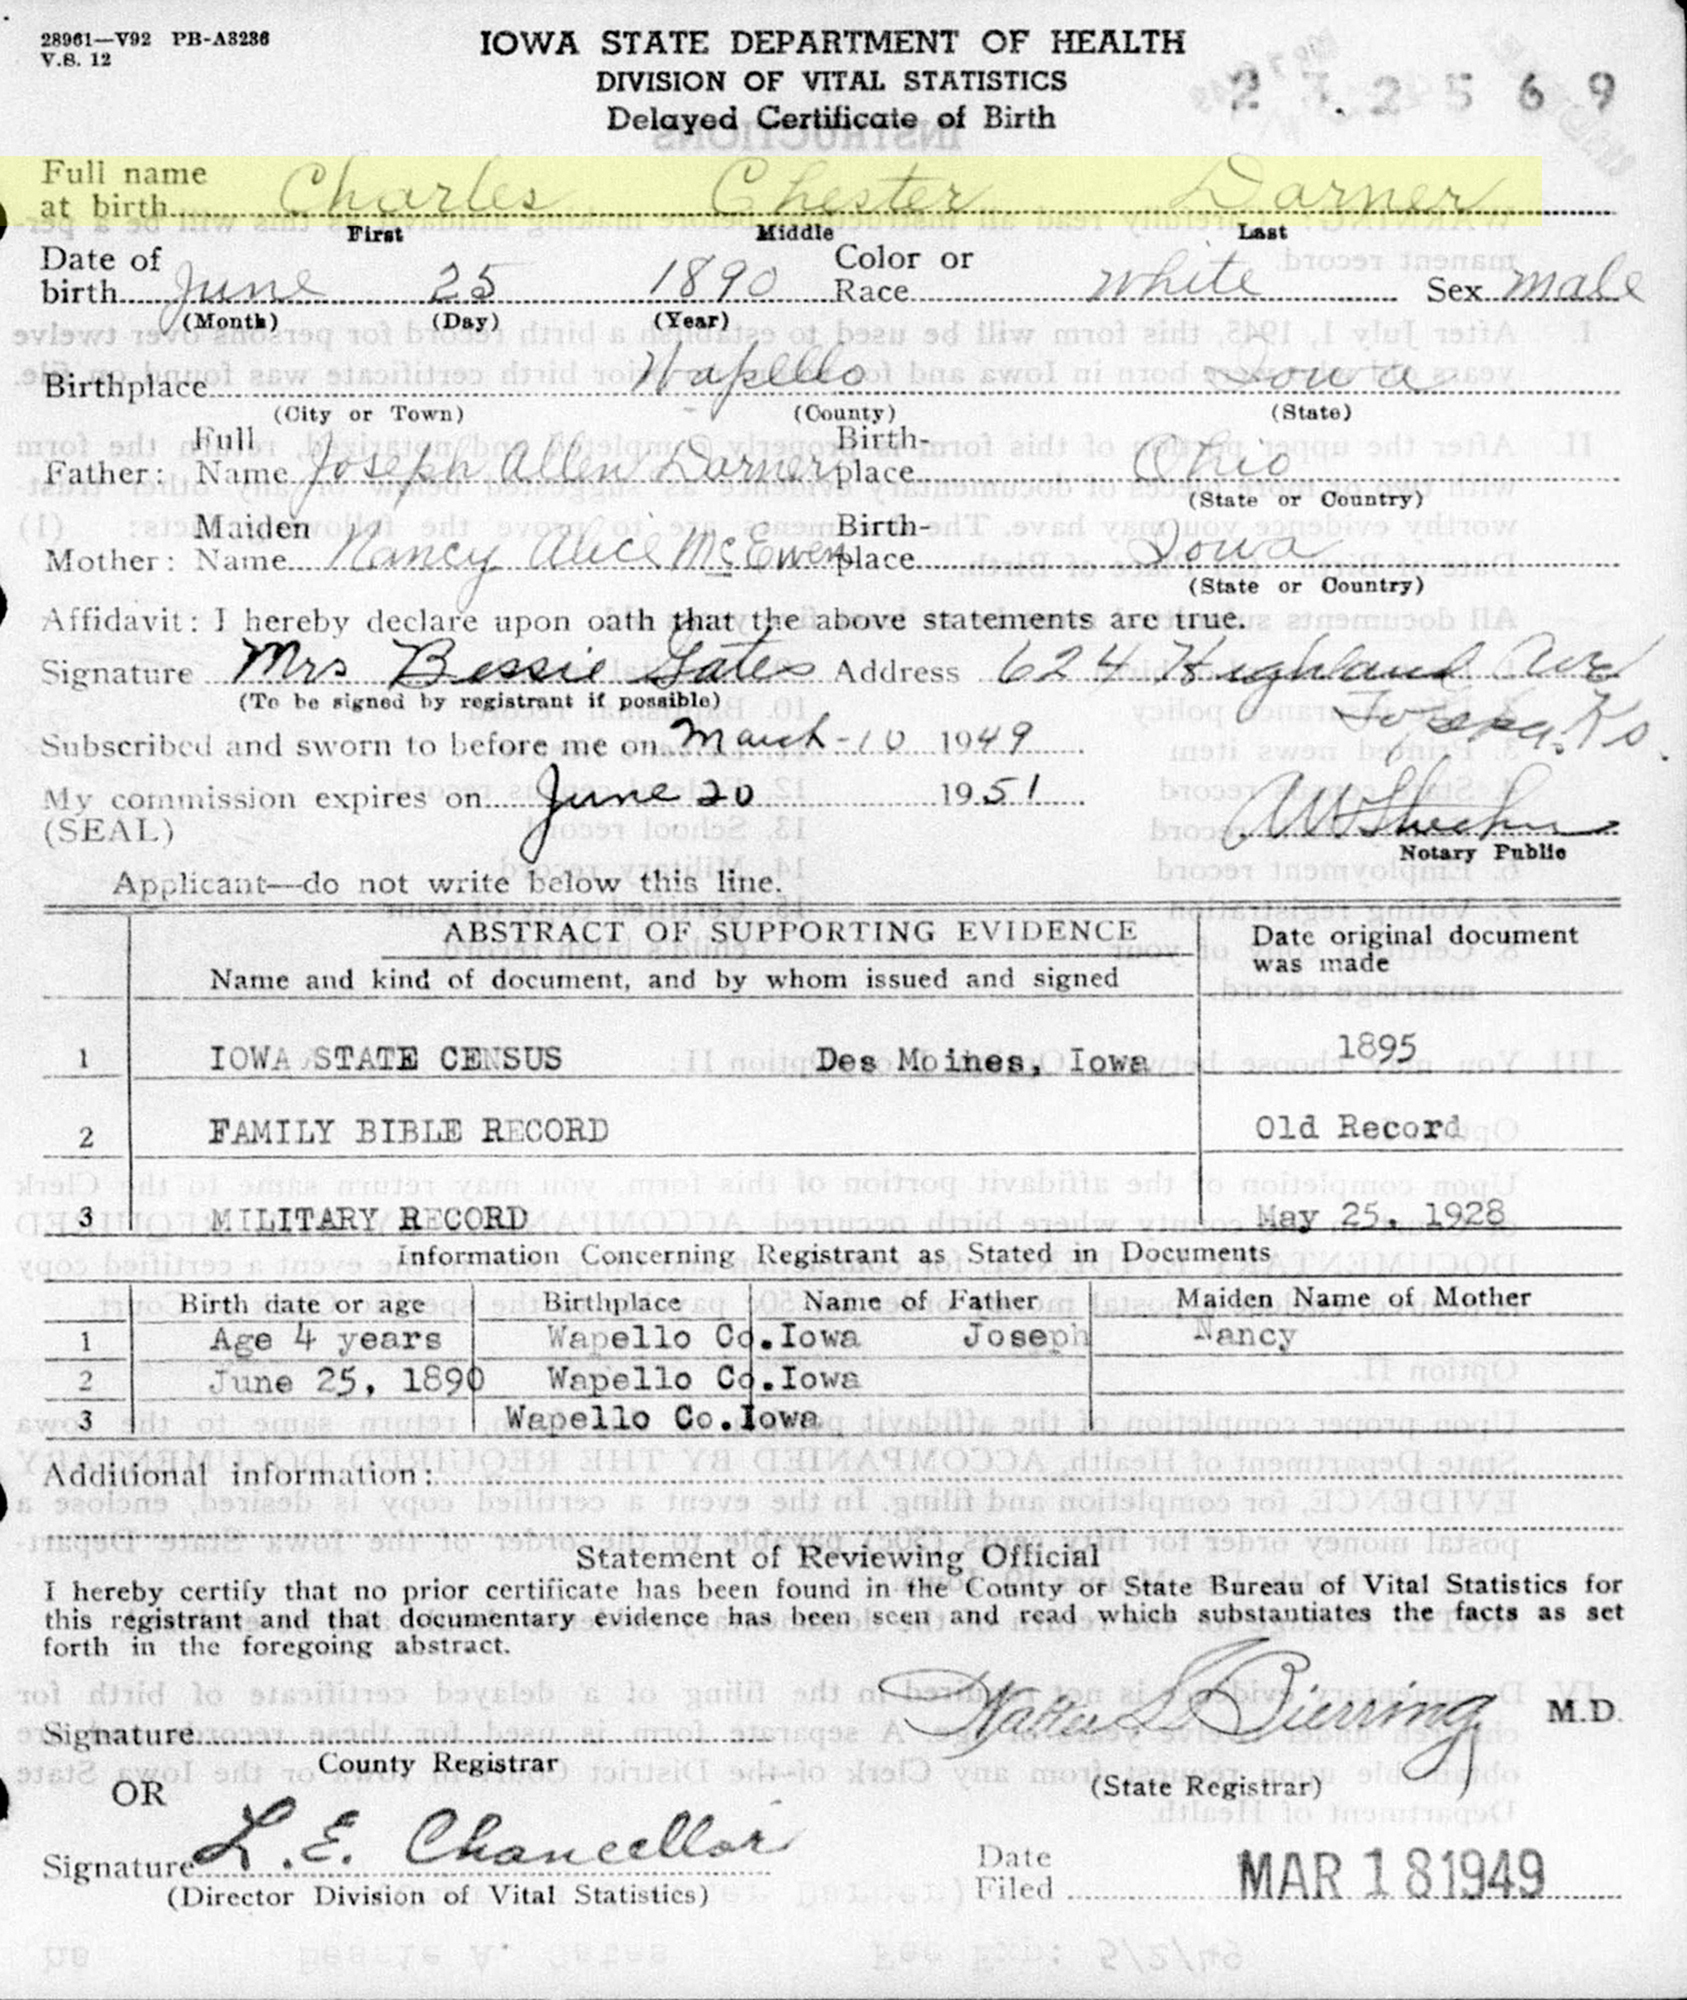 28961—V92 PB-A3236
V.S. 12
IOWA STATE DEPARTMENT OF HEALTH
DIVISION OF VITAL STATISTICS
Delayed Certificate of Birth
2 7 . 2 5 6 9
Full name
at birth Charles Chester Darner
First Middle Last
Date of birth June 25 1890 Color or Race white Sex male
(Month) (Day) (Year)
Birthplace Wapello Iowa
(City or Town) (County) (State)
Father: Full Name Joseph Allen Darner Birth-place Ohio
(State or Country)
Mother: Maiden Name Nancy Alice McEwen Birth-place Iowa
(State or Country)
Affidavit: I hereby declare upon oath that the above statements are true.
Signature Mrs Bessie Gates Address 624 Highland Ave
(To be signed by registrant if possible) Topeka. Ks.
Subscribed and sworn to before me on March-10 1949
My commission expires on June 20 1951
(SEAL)
Notary Public
Applicant—do not write below this line.
ABSTRACT OF SUPPORTING EVIDENCE Date original document
was made
Name and kind of document, and by whom issued and signed
1 IOWA STATE CENSUS Des Moines, Iowa 1895
2 FAMILY BIBLE RECORD Old Record
3 MILITARY RECORD May 25, 1928
Information Concerning Registrant as Stated in Documents
Birth date or age Birthplace Name of Father Maiden Name of Mother
1 Age 4 years Wapello Co.Iowa Joseph Nancy
2 June 25, 1890 Wapello Co.Iowa
3 Wapello Co.Iowa
Additional information:
Statement of Reviewing Official
I hereby certify that no prior certificate has been found in the County or State Bureau of Vital Statistics for
this registrant and that documentary evidence has been seen and read which substantiates the facts as set
forth in the foregoing abstract.
Signature Walter L Bierring M.D.
County Registrar (State Registrar)
OR
Signature L. E. Chancellor Date Filed MAR 18 1949
(Director Division of Vital Statistics)